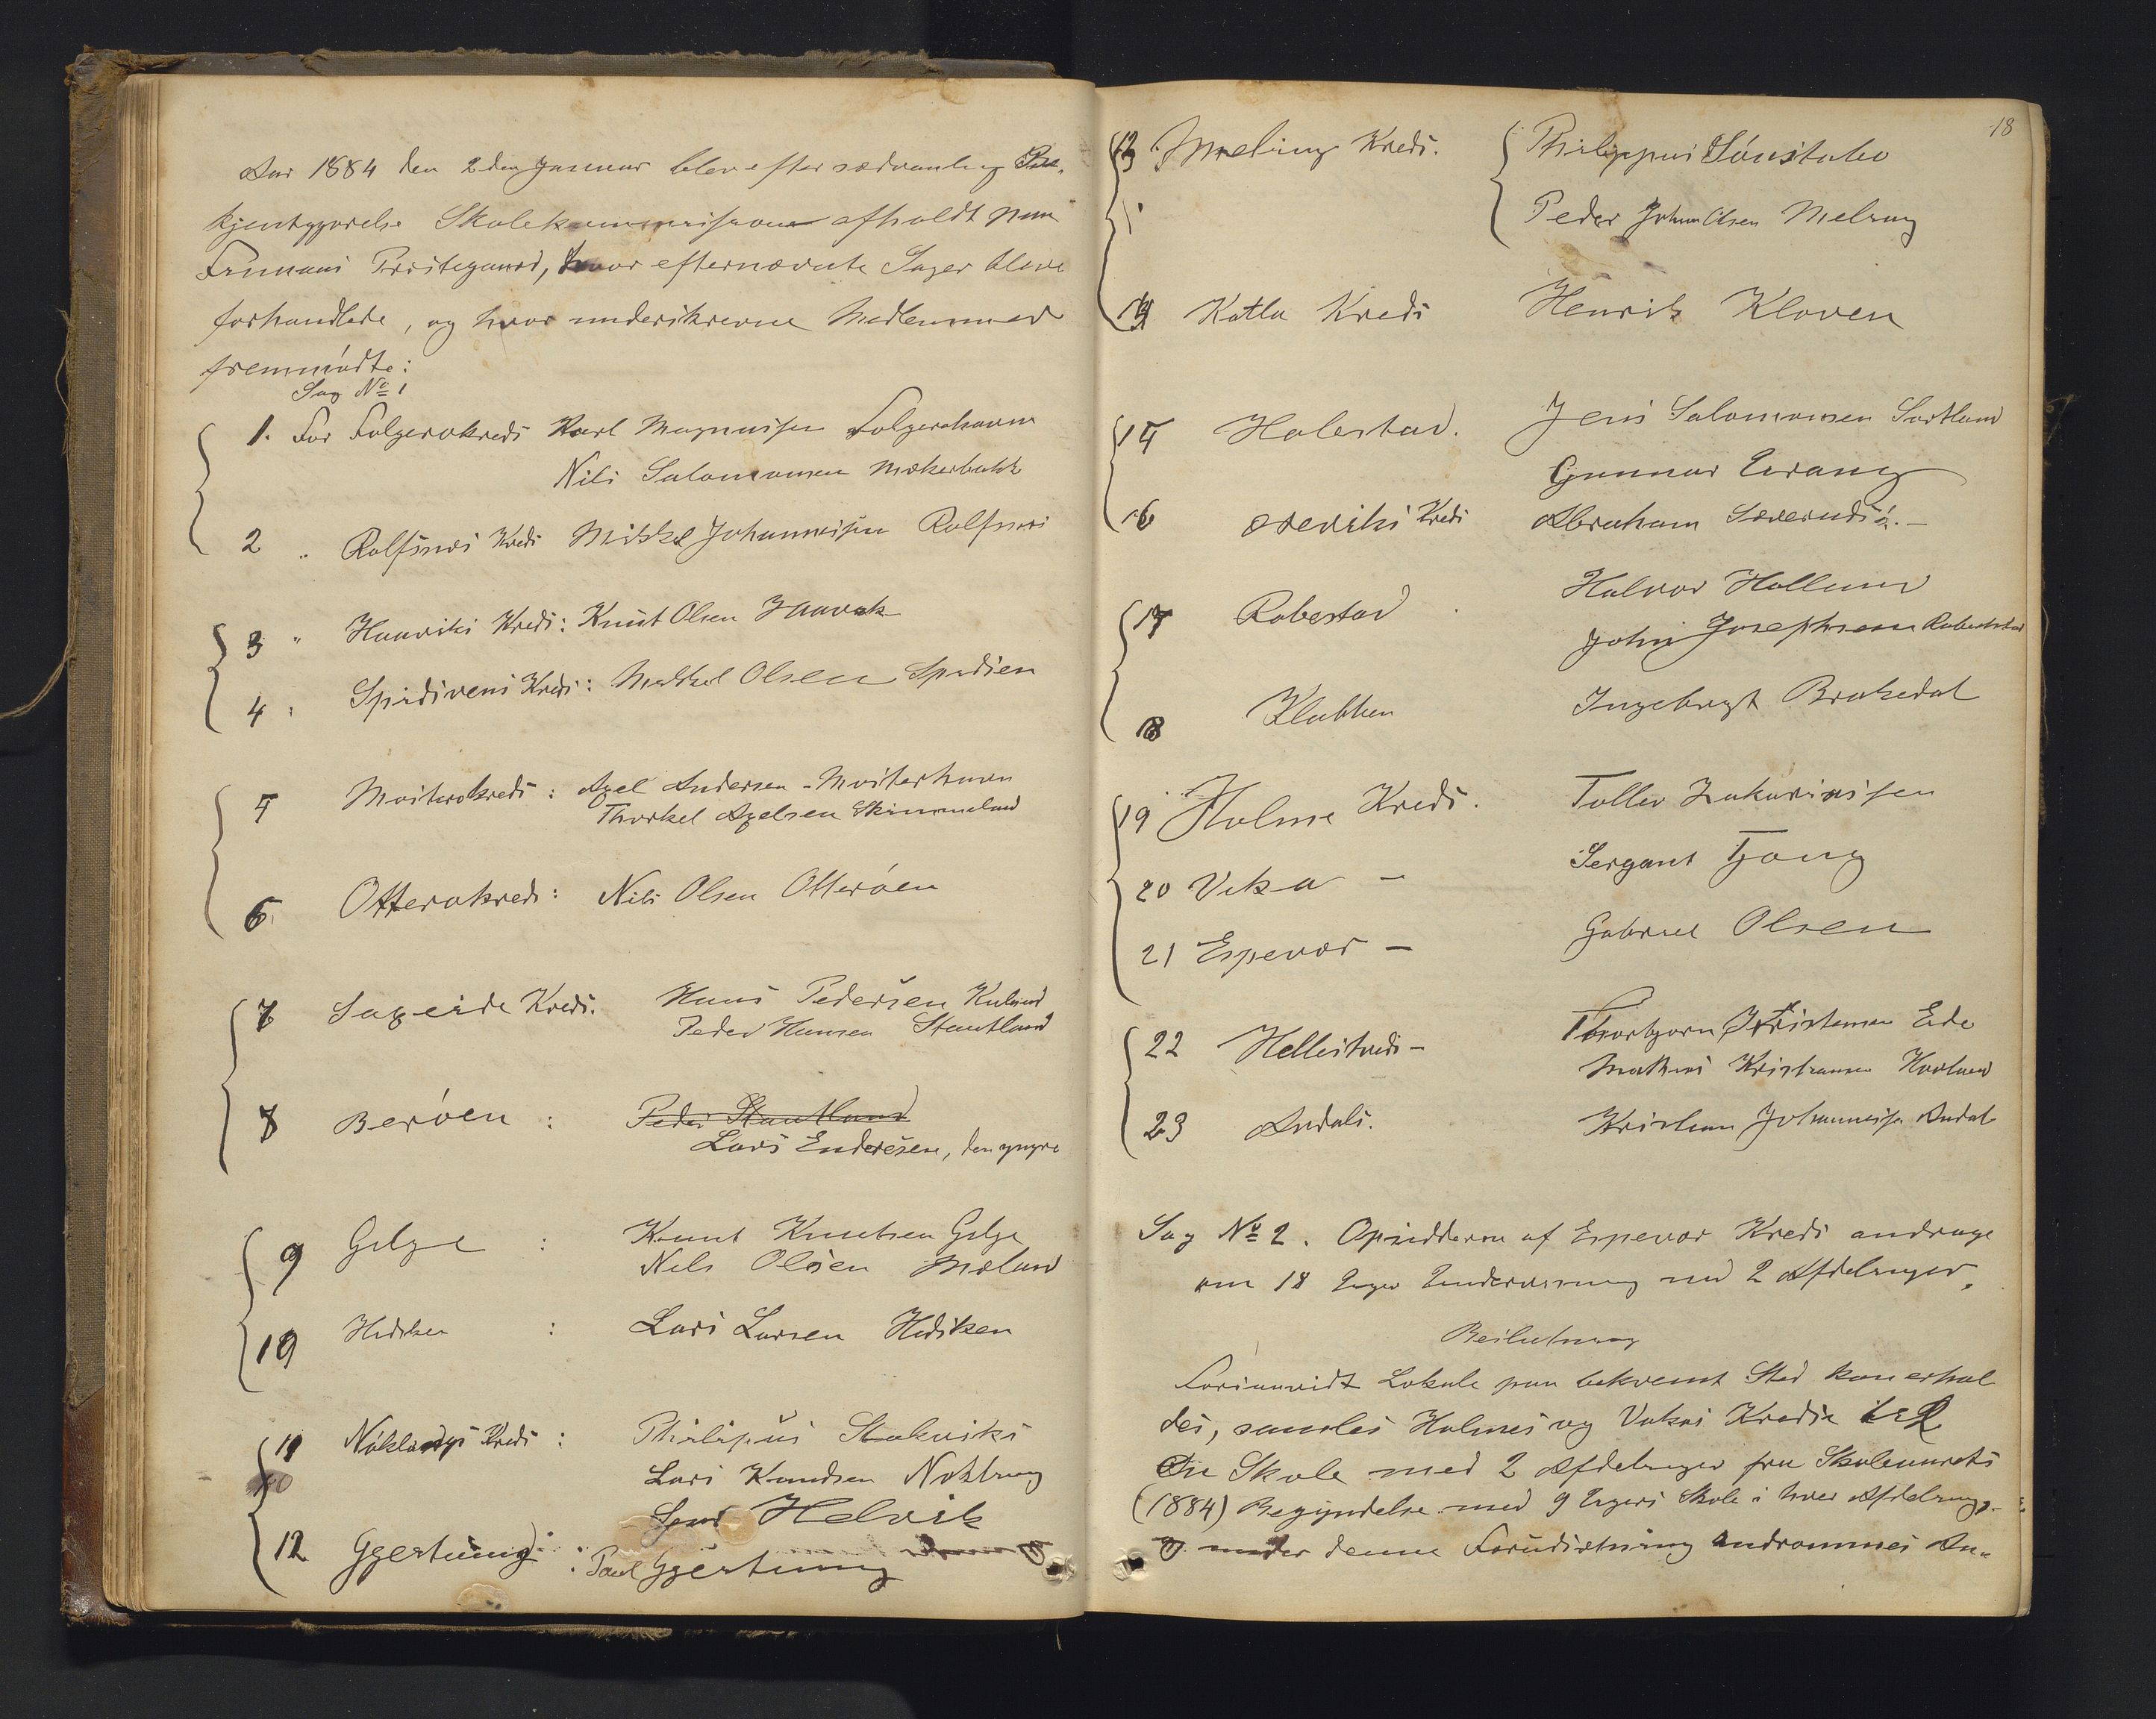 Aar 1884 den 2den Januar blev efter sædvanlig Be-
kjentgjørelse Skolekommission afholdt paa
Finnaas Præstegaard, hvor efternævnte Sager bleve
forhandlede, og hvor underskrevne Medlemmer
fremmødte:
Sag No 1
1. For Folgerøkreds Karl Magnussen Folgerøhavn
Nils Salomonsen Mækerbakk
2 " Rolfsnes Kreds Mikkel Johannessen Rolfsnes
3 " Haaviks Kreds: Knut Olsen Haavik
4 " Spidsøens Kreds: Mikkel Olsen Spidsøen
5 Mosterøkreds: Axel Andersen - Mosterhavn
Thorkel Axelsen Skimmeland
6 Otterøkreds: Nils Olsen Otterøen
7 Sageide Kreds. Hans Pedersen Kuleseid
Peder Hansen Stautland
8 Berøen : Peder Stautland
Lars Endresen, den yngre
9 Gilje : Knut Knutsen Gilje
Nils Olsen Mæland
10 Hidsken : Lars Larsen Hidsken
11 Nøklings Kreds : Philipus Stokviks
Lars Knudsen Nøkling
Helvik
12 Gjerstung : Paul Gjerstung
18
13 Meling Kreds. Philippus Sønstabø
Peder Johan Olsen Meling
14 Katla Kreds Henrik Kloven
15 Halestad. Jens Salomonsen Sortland
Gunnar Urang
16 Øreviks Kreds Abraham Sæverudsø. -
17 Robestad Halvor Holland
John Josephsen Robestad
18 Klubben Ingebrigt Brakedal
19 Holme Kreds. Tollev Zakariassen
20 Vika - Sergant Tjong
21 Espevær - Gabriel Olsen
22 Hellestveds - Thorbjørn Kristensen Eide
Mathias Kristiansen Hovland
23 Andals. Kristian Johannessen Andal
Sag No 2. Opsidderne af Espevær Kreds andrage
om 18 Ugers Undervisning med 2 Afdelinger.
Beslutning
Forsaavidt Lokale paa bekvemt Sted kan erhol
des, samles Holmes og Vikas Kredse til
En Skole med 2 Afdelinger fra Skoleaarets
(1884) Begyndelse med 9 Ugers Skole i hver Afdeling.
under denne Forudsætning indrømmes An-